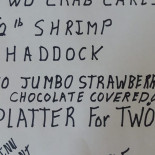 WO CRAB CAKES
½ lb SHRIMP
HADDOCK
JUMBO STRAWBERR
CHOCOLATE COVERED
PLATTER For TWO